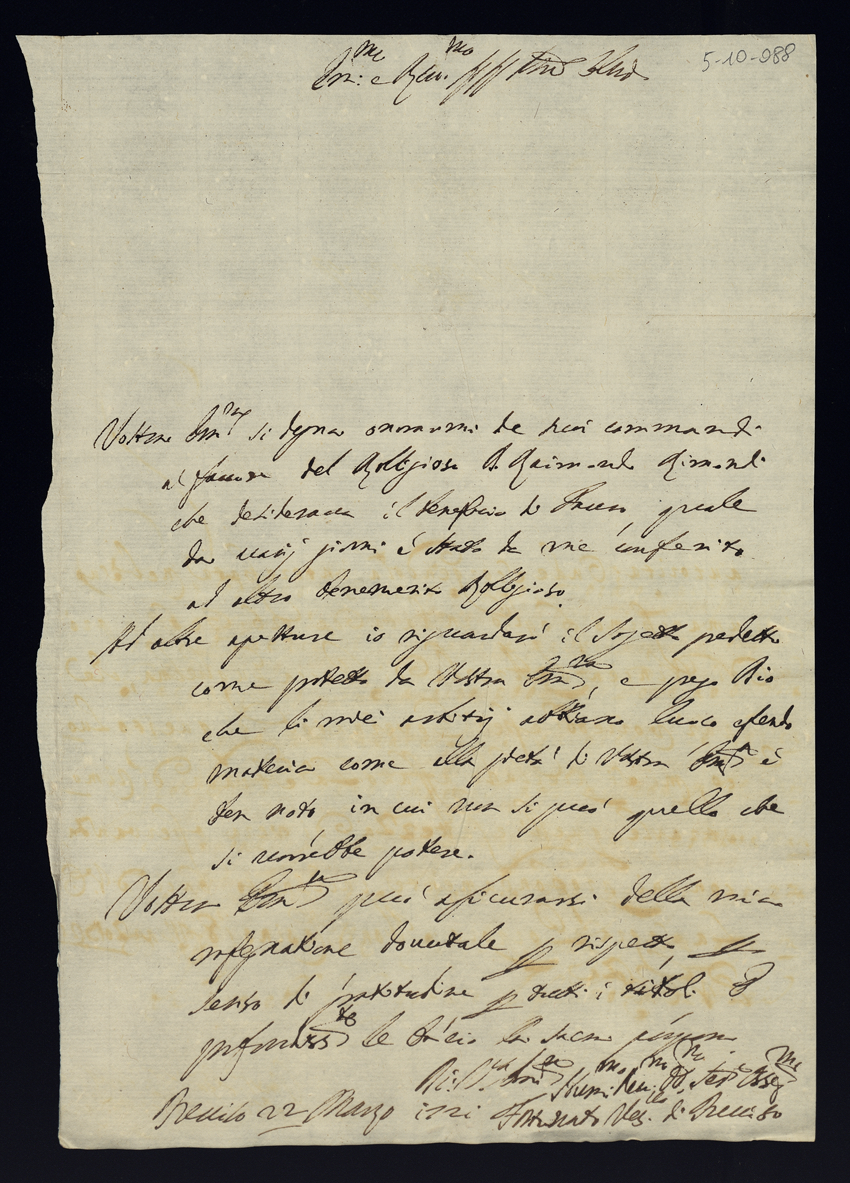 5-10-988
Em:me e Rev.mo
Vostra Em.za si degna onorarmi de suoi commandi
al favore del Religioso D. Raimondo Rimondi
che desiderava il Beneficio di quale
da varij giorni è stato da me conferito
ad altro benemerito Religioso.
Ad altre aperture io riguarderò il Sogetto predetto
come protetto da Vostra Em.za, e prego Dio
che li miei arbitrij abbiano luoco essendo
materia come alla pietà di Vostra Em.za è
ben noto in cui non si può quello che
si vorrebbe potere.
Vostra Em.za può assicurarsi della mia
rassegnatione doverosa p rispetto, p
senso di gratitudine p tutti i titoli. E
profondiss.te le bacio la sacra porpora.
Di V.ra Em.za Humi.mo Dev.mo
22 Marzo Fortunato Ves.